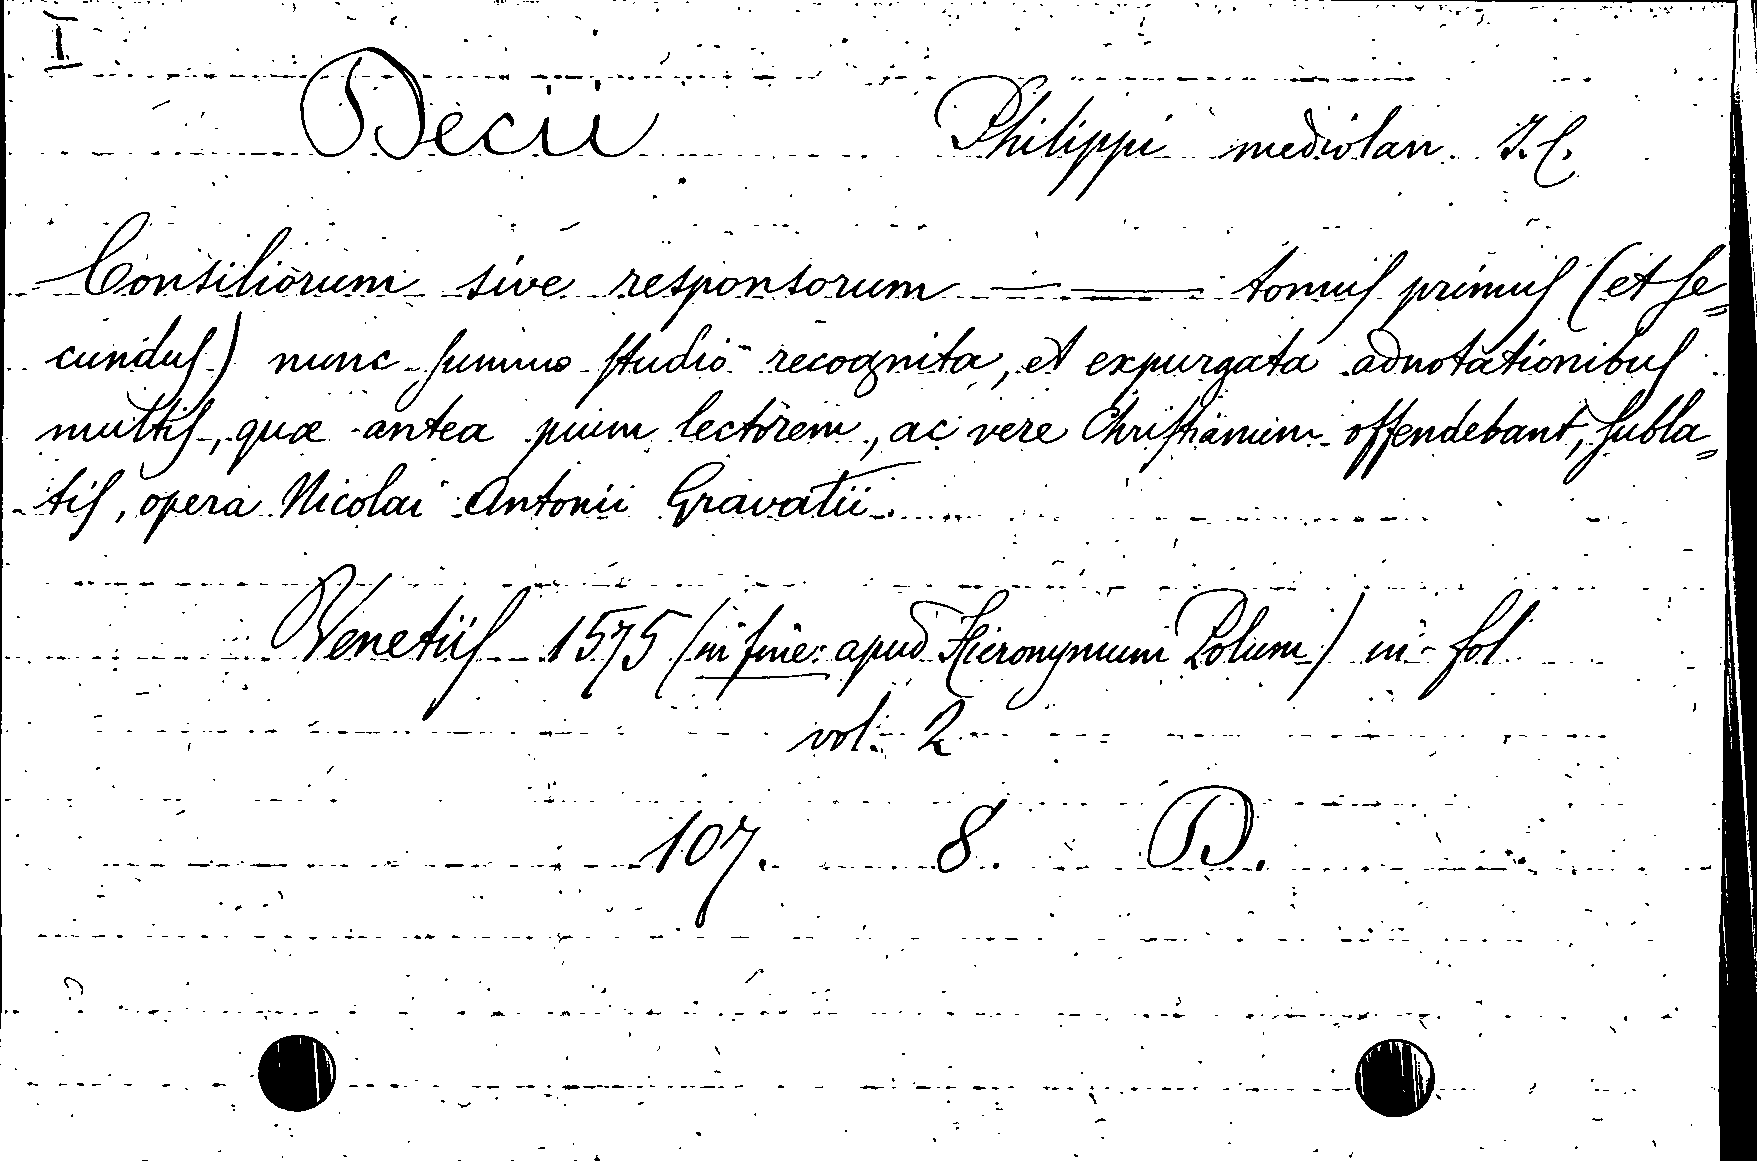 I
Decii Philippi mediolan. J. C.
Consiliorum sive responsorum — — tomus primus (et se=
cundus) nunc summo studio recognita, et expurgata adnotationibus
multis, quæ antea pium lectorem, ac vere Christianum offendebant, subla=
tis, opera Nicolai Antonii Gravatii.
Venetiis 1575 (in fine: apud Hieronymum Polum) in-fol
vol. 2
107. 8. D.